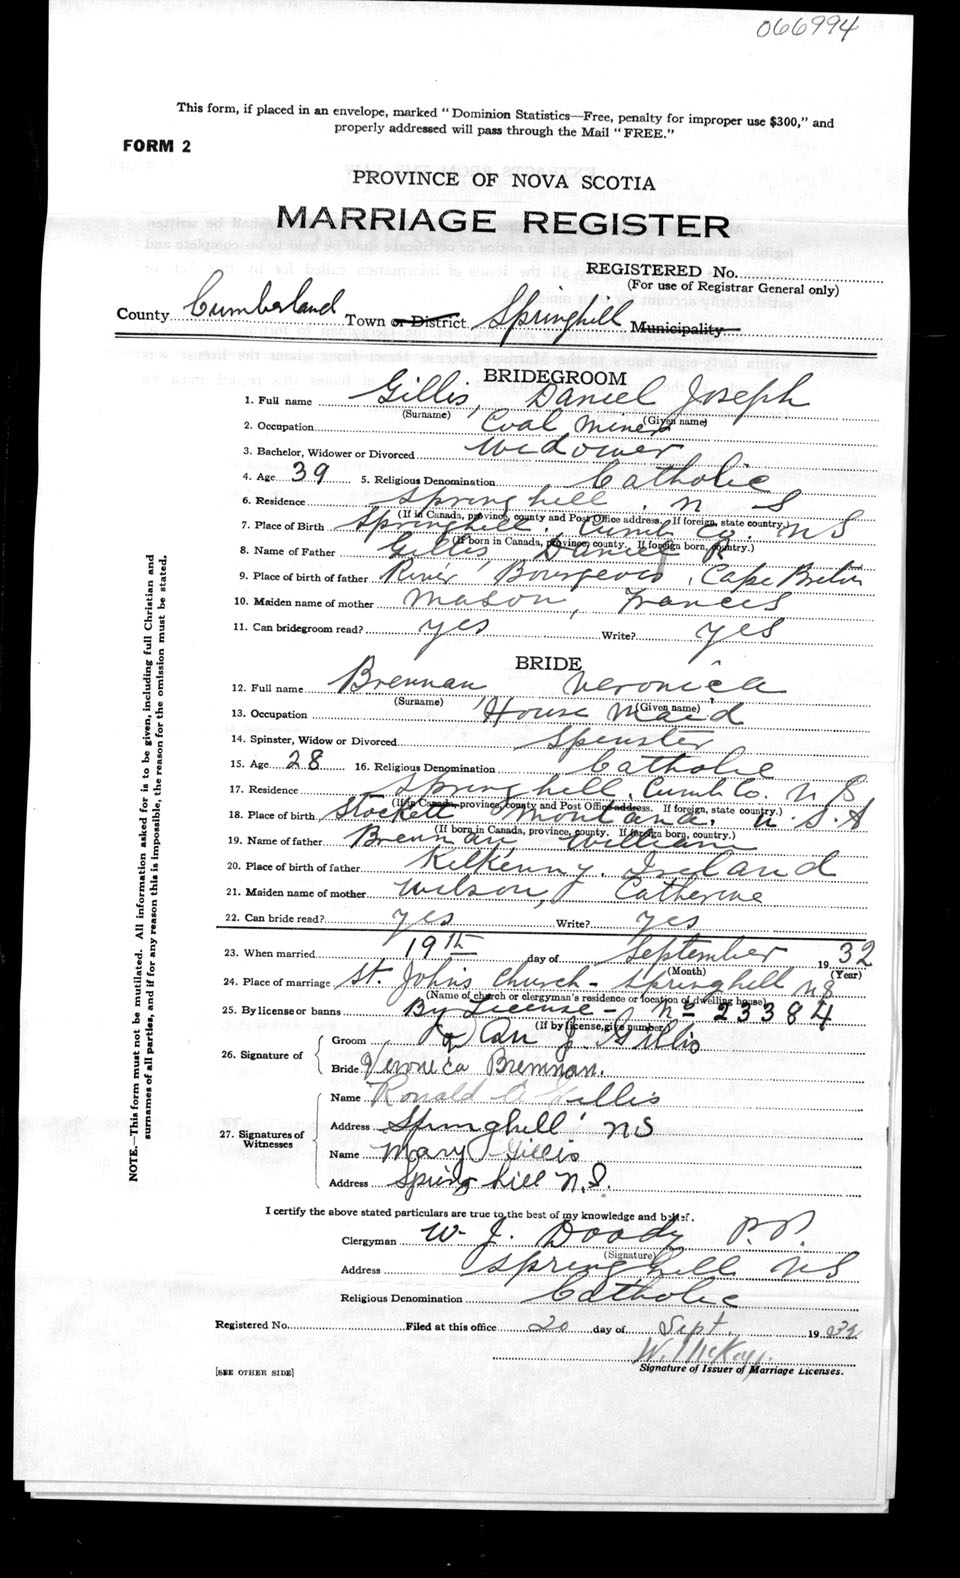 066994
This form, if placed in an envelope, marked "Dominion Statistics—Free, penalty for improper use $300," and
properly addressed will pass through the Mail "FREE."
FORM 2
PROVINCE OF NOVA SCOTIA
MARRIAGE REGISTER
REGISTERED No.
(For use of Registrar General only)
County Cumberland Town or District Springhill Municipality
BRIDEGROOM
1. Full name Gillis, Daniel Joseph
(Surname) (Given name)
2. Occupation Coal Miner
3. Bachelor, Widower or Divorced Widower
4. Age 39 5. Religious Denomination Catholic
6. Residence Springhill, N S
(If in Canada, province, county and Post Office address. If foreign, state country.)
7. Place of Birth Springhill, Cumb Co. N S
(If born in Canada, province, county. If foreign born, country.)
8. Name of Father Gillis, Daniel R
9. Place of birth of father River Bourgeois, Cape Breton
10. Maiden name of mother Mason, Frances
11. Can bridegroom read? yes Write? yes
BRIDE
12. Full name Brennan Veronica
(Surname) (Given name)
13. Occupation House Maid
14. Spinster, Widow or Divorced Spinster
15. Age 28 16. Religious Denomination Catholic
17. Residence Springhill, Cumb Co. N S
(If in Canada, province, county and Post Office address. If foreign, state country.)
18. Place of birth Stockett Montana, U.S.A
(If born in Canada, province, county. If foreign born, country.)
19. Name of father Brennan, William
20. Place of birth of father Kilkenny, Ireland
21. Maiden name of mother Wilson, Catherine
22. Can bride read? yes Write? yes
23. When married 19th day of September 1932
(Month) (Year)
24. Place of marriage St. John's Church - Springhill NS
(Name of church or clergyman's residence or location of dwelling house)
25. By license or banns By License - No 23384
(If by license, give number.)
26. Signature of
Groom Dan J. Gillis
Bride Veronica Brennan.
27. Signatures of Witnesses
Name Ronald A Gillis
Address Springhill NS
Name Mary Gillis
Address Spring hill N.S.
I certify the above stated particulars are true to the best of my knowledge and belief.
Clergyman W. J. Doody P.P.
(Signature)
Address Springhill NS
Religious Denomination Catholic
Registered No. Filed at this office 20 day of Sept. 1932
W. McKay.
Signature of Issuer of Marriage Licenses.
[SEE OTHER SIDE]
NOTE.—This form must not be mutilated. All information asked for is to be given, including full Christian and
surnames of all parties, and if for any reason this is impossible, the reason for the omission must be stated.